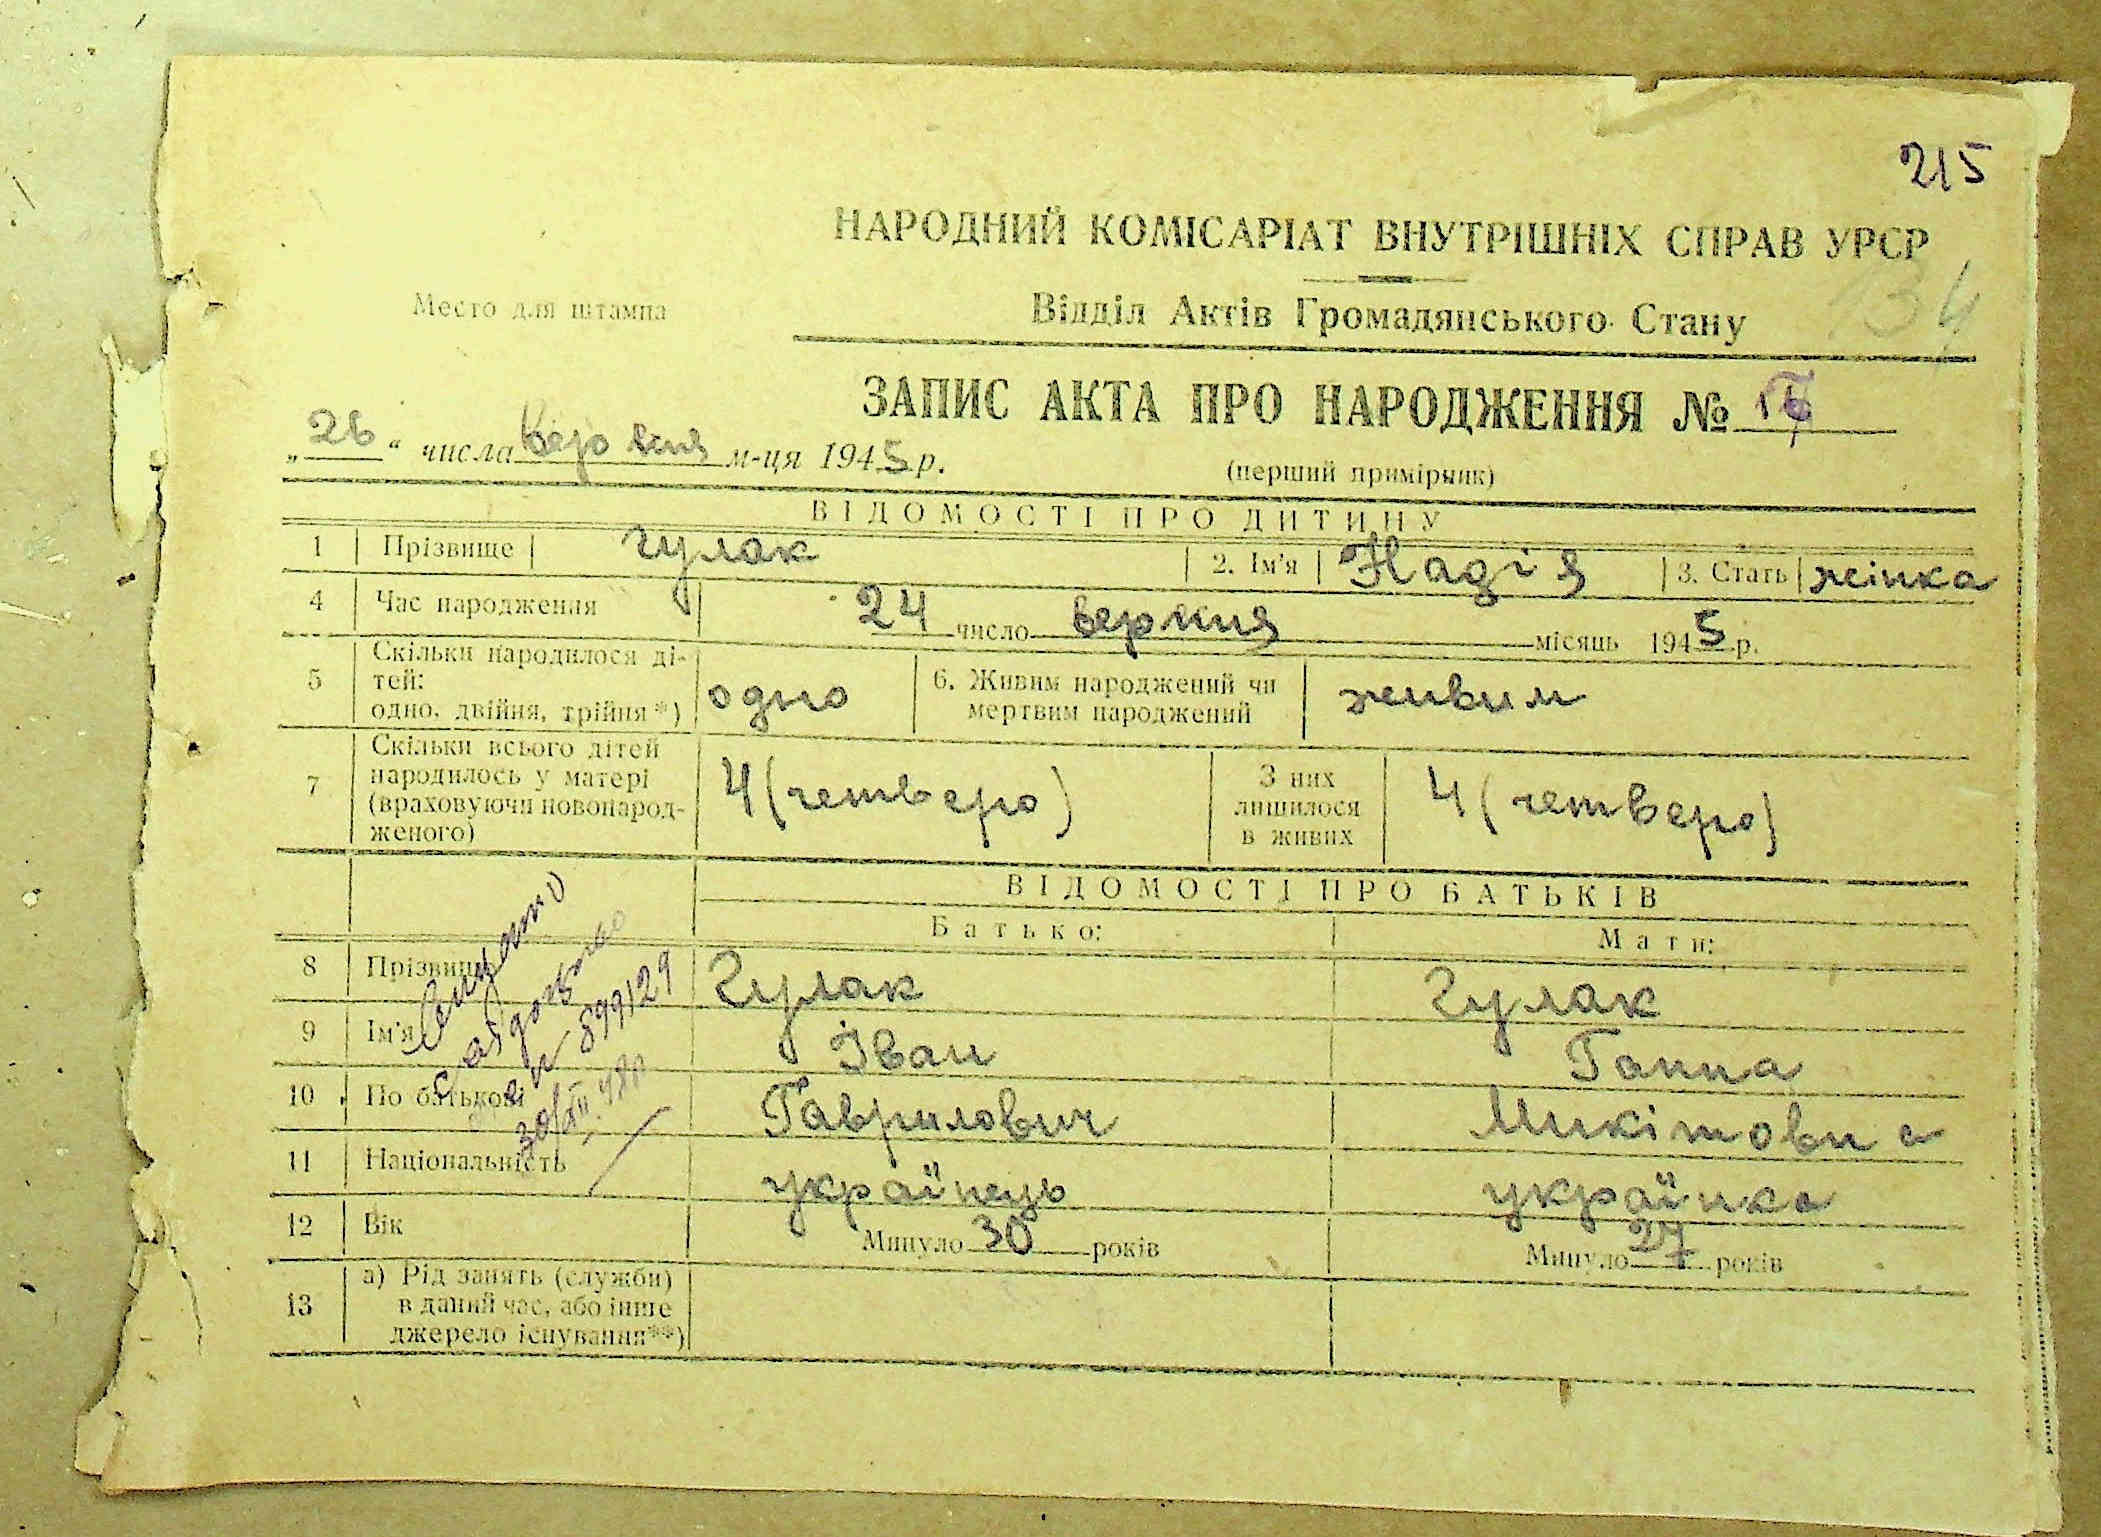 215
НАРОДНИЙ КОМІСАРІАТ ВНУТРІШНІХ СПРАВ УРСР
34
Место для штампа
Відділ Актів Громадянського Стану
ЗАПИС АКТА ПРО НАРОДЖЕННЯ №
„26“ числа вересня м-ця 1945 р.
(перший примірник)
ВІДОМОСТІ ПРО ДИТИНУ
1 Прізвище Гулак 2. Ім'я Надія 3. Стать жінка
4 Час народження 24 число вересня місяць 1945 р.
5 Скільки народилося ді-
тей:
одно, двійня, трійня*) одно 6. Живим народжений чи
мертвим народжений живим
7 Скільки всього дітей
народилось у матері
(враховуючи новонарод-
женого) 4 (четверо) З них
лишилося
в живих 4 (четверо)
ВІДОМОСТІ ПРО БАТЬКІВ
Батько: Мати:
8 Прізвище Гулак Гулак
9 Ім'я Іван Ганна
10 По батькові Гаврилович Микітовна
11 Національність українець українка
12 Вік Минуло 30 років Минуло 27 років
13 а) Рід занять (служби)
в даний час, або інше
джерело існування**)
30/XII 48р